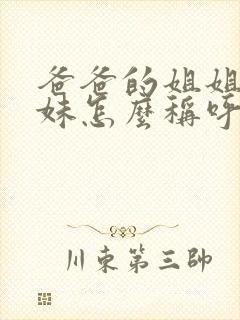 爸爸的姐姐
妹怎麼稱呼
川東第三帥